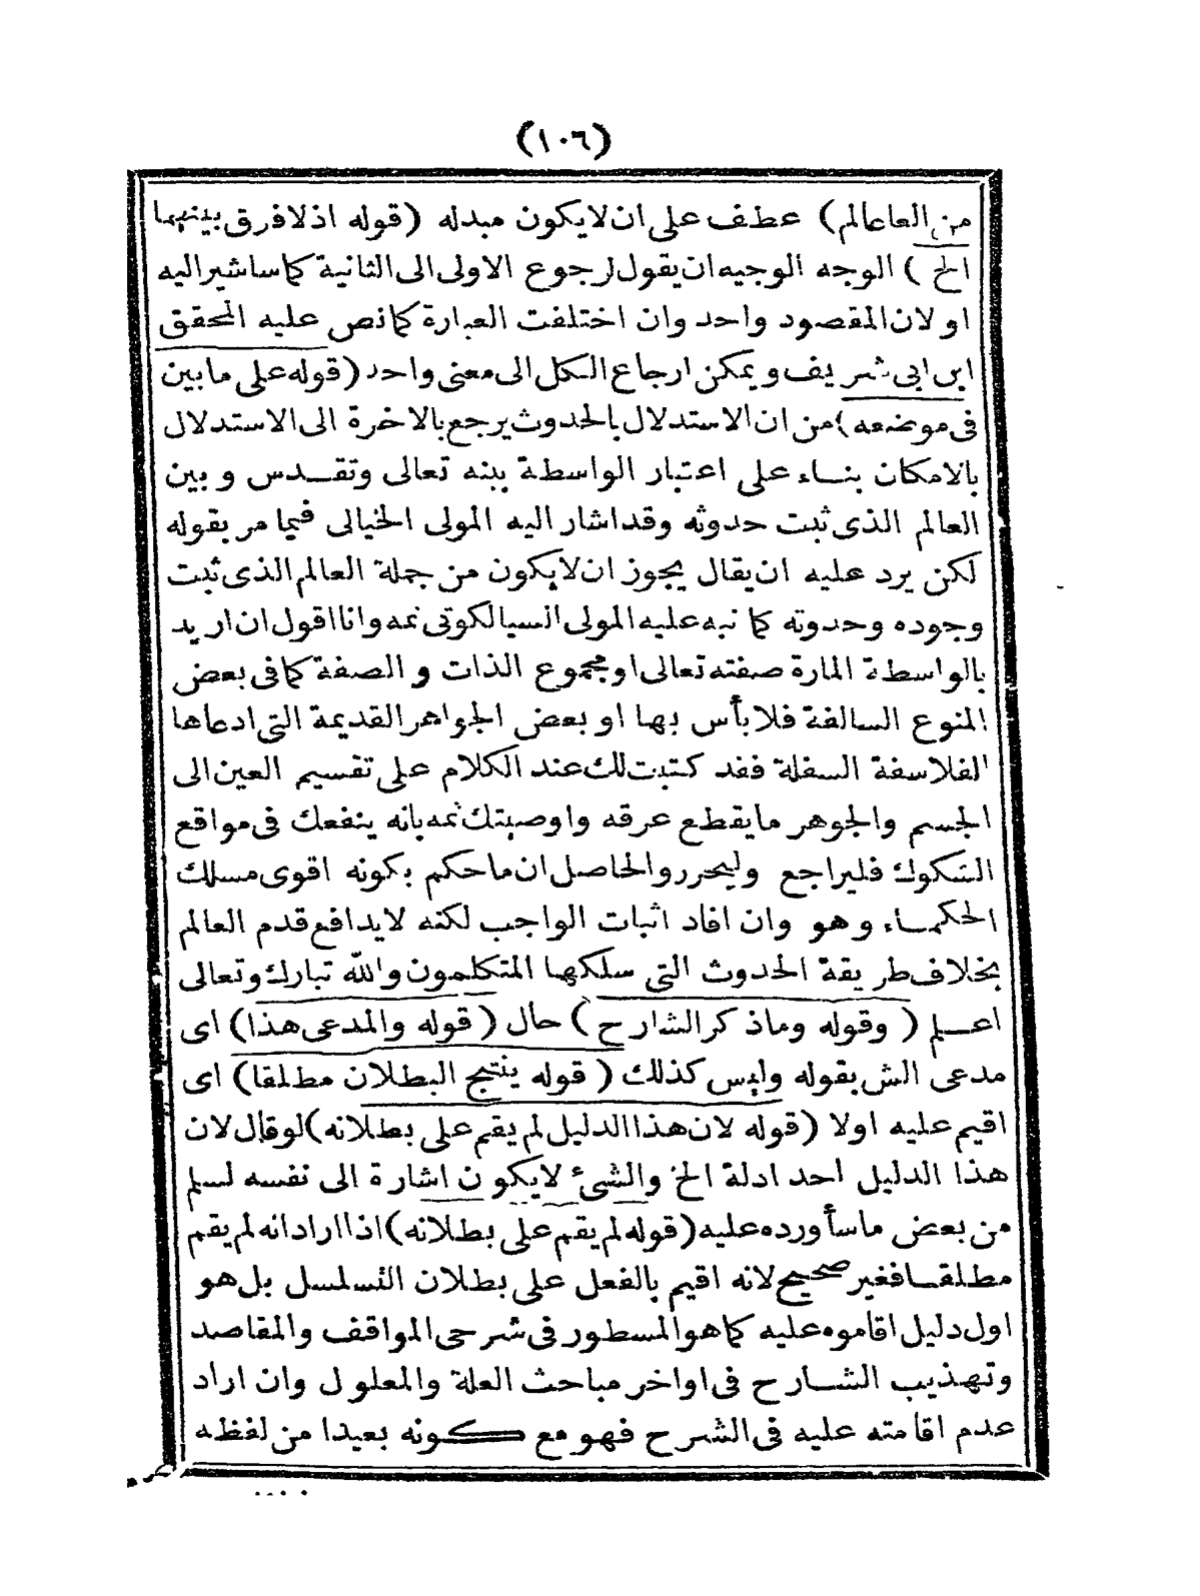 (١٠٦)
من العاعالم) عطف على ان لا يكون مبدله (قوله اذ لا فرق بينهما
الخ) الوجه الوجيه ان يقول لرجوع الاولى الى الثانية كما ساشير اليه
او لان المقصود واحد وان اختلفت العبارة كما نص عليه المحقق
ابن ابى شريف ويمكن ارجاع الكل الى معنى واحد (قوله على ما بين
فى موضعه) من ان الاستدلال بالحدوث يرجع بالاخرة الى الاستدلال
بالامكان بناء على اعتبار الواسطة بينه تعالى وتقدس وبين
العالم الذى ثبت حدوثه وقد اشار اليه المولى الخيالى فيما مر بقوله
لكن يرد عليه ان يقال يجوز ان لا يكون من جملة العالم الذى ثبت
وجوده وحدوثه كما نبه عليه المولى السيالكوتى ثمه وانا اقول ان اريد
بالواسطة المارة صفته تعالى او مجموع الذات و الصفة كما فى بعض
المنوع السالفة فلا بأس بها او بعض الجواهر القديمة التى ادعاها
الفلاسفة السفلة فقد كتبت لك عند الكلام على تقسيم العين الى
الجسم والجوهر ما يقطع عرقه واوصيتك ثمه بانه ينفعك فى مواقع
الشكوك فليراجع وليحرر والحاصل ان ما حكم بكونه اقوى مسلك
الحكماء وهو وان افاد اثبات الواجب لكنه لا يدافع قدم العالم
بخلاف طريقة الحدوث التى سلكها المتكلمون والله تبارك وتعالى
اعلم (وقوله وما ذكر الشارح) حال (قوله والمدعى هذا) اى
مدعى الش بقوله وليس كذلك (قوله ينتج البطلان مطلقا) اى
اقيم عليه اولا (قوله لان هذا الدليل لم يقم على بطلانه) لو قال لان
هذا الدليل احد ادلة الخ والشئ لا يكون اشارة الى نفسه لسلم
من بعض ما سأورده عليه (قوله لم يقم على بطلانه) اذا اراد انه لم يقم
مطلقا فغير صحيح لانه اقيم بالفعل على بطلان التسلسل بل هو
اول دليل اقاموه عليه كما هو المسطور فى شرحى المواقف والمقاصد
وتهذيب الشارح فى اواخر مباحث العلة والمعلول وان اراد
عدم اقامته عليه فى الشرح فهو مع كونه بعيدا من لفظه